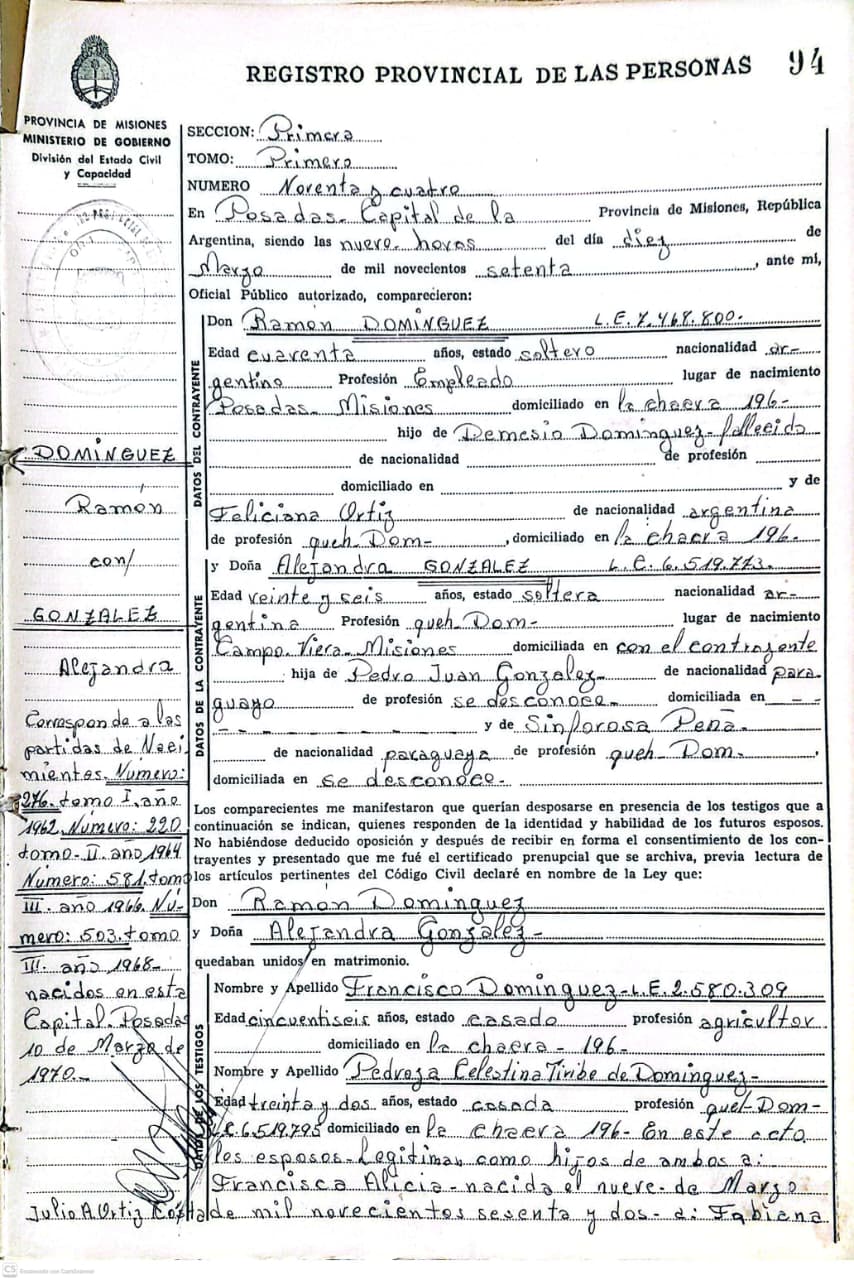 REGISTRO PROVINCIAL DE LAS PERSONAS 94
PROVINCIA DE MISIONES
MINISTERIO DE GOBIERNO
División del Estado Civil
y Capacidad
SECCION: Primera
TOMO: Primero
NUMERO Noventa y cuatro
En Posadas - Capital de la Provincia de Misiones, República
Argentina, siendo las nueve - horas del día diez de
Marzo de mil novecientos setenta, ante mi,
Oficial Público autorizado, comparecieron:
DATOS DEL CONTRAYENTE
Don Ramon DOMÍNGUEZ L.E. 7.468.800.-
Edad cuarenta años, estado soltero nacionalidad ar-
gentino Profesión Empleado lugar de nacimiento
Posadas - Misiones domiciliado en la chacra 196-
hijo de Demesio Dominguez - fallecido
de nacionalidad de profesión
domiciliado en y de
Feliciana Ortiz de nacionalidad argentina
de profesión queh- Dom-, domiciliado en la chacra 196.-
DATOS DE LA CONTRAYENTE
y Doña Alejandra GONZALEZ L.C. 6.519.773.-
Edad veinte y seis años, estado soltera nacionalidad ar-
gentina Profesión queh- Dom- lugar de nacimiento
Campo-Viera - Misiones domiciliada en con el contrayente
hija de Pedro Juan Gonzalez- de nacionalidad para-
guayo de profesión se desconoce- domiciliada en - - -
- - - - - - - - y de Sinforosa Peña-
de nacionalidad paraguaya de profesión queh- Dom-,
domiciliada en se desconoce-
Los comparecientes me manifestaron que querían desposarse en presencia de los testigos que a
continuación se indican, quienes responden de la identidad y habilidad de los futuros esposos.
No habiéndose deducido oposición y después de recibir en forma el consentimiento de los con-
trayentes y presentado que me fué el certificado prenupcial que se archiva, previa lectura de
los artículos pertinentes del Código Civil declaré en nombre de la Ley que:
Don Ramón Dominguez
y Doña Alejandra Gonzalez-
quedaban unidos en matrimonio.
DATOS DE LOS TESTIGOS
Nombre y Apellido Francisco Dominguez - L.E. 2.580.309
Edad cincuentiseis años, estado casado profesión agricultor
domiciliado en la chacra - 196-
Nombre y Apellido Pedroza Celestina Tiribe de Dominguez-
Edad treinta y dos años, estado casada profesión queh-Dom-
L.C. 6.519.795 domiciliado en la chacra 196- En este acto
los esposos - Legitiman como hijos de ambos a:
Francisca Alicia - nacida el nueve - de Marzo
de mil novecientos sesenta y dos - a: Fabiana
DOMÍNGUEZ
Ramón
con/
GONZALEZ
Alejandra
Corresponde a las
partidas de Naci-
mientos. Número:
276. tomo I. año
1962. Número: 220
tomo - II. año 1964
Número: 581. tomo
III. año 1966. Nú-
mero: 503. tomo
III. año 1968-
nacidos en esta
Capital. Posadas
10 de Marzo de
1970.-
Julio A. Ortiz
CS Escaneado con CamScanner